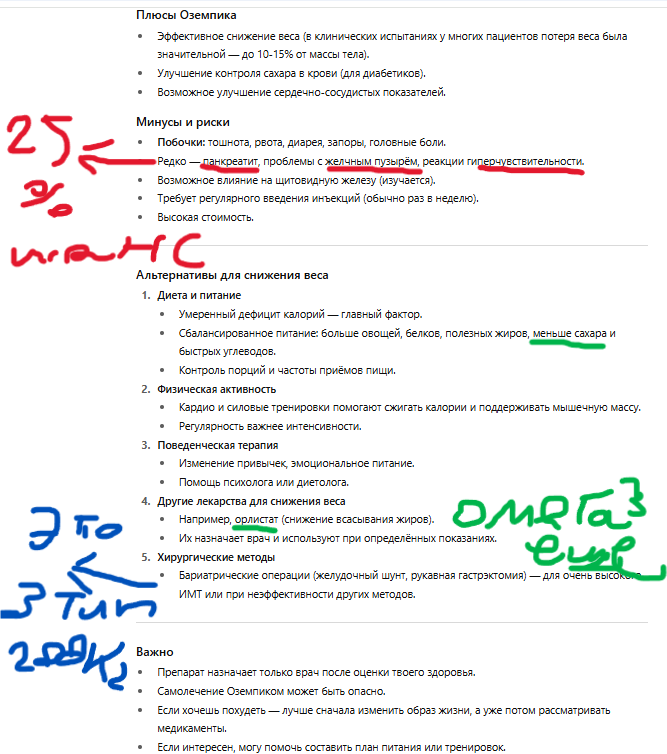 Плюсы Оземпика
Эффективное снижение веса (в клинических испытаниях у многих пациентов потеря веса была
значительной — до 10-15% от массы тела).
Улучшение контроля сахара в крови (для диабетиков).
Возможное улучшение сердечно-сосудистых показателей.
Минусы и риски
Побочки: тошнота, рвота, диарея, запоры, головные боли.
25
Редко — панкреатит, проблемы с желчным пузырём, реакции гиперчувствительности.
Возможное влияние на щитовидную железу (изучается).
%
Требует регулярного введения инъекций (обычно раз в неделю).
Высокая стоимость.
шанс
Альтернативы для снижения веса
1. Диета и питание
Умеренный дефицит калорий — главный фактор.
Сбалансированное питание: больше овощей, белков, полезных жиров, меньше сахара и
быстрых углеводов.
Контроль порций и частоты приёмов пищи.
2. Физическая активность
Кардио и силовые тренировки помогают сжигать калории и поддерживать мышечную массу.
Регулярность важнее интенсивности.
3. Поведенческая терапия
Изменение привычек, эмоциональное питание.
Помощь психолога или диетолога.
4. Другие лекарства для снижения веса
Например, орлистат (снижение всасывания жиров).
омега3
Их назначает врач и используют при определённых показаниях.
еще
Это
5. Хирургические методы
Бариатрические операции (желудочный шунт, рукавная гастрэктомия) — для очень высокого
ИМТ или при неэффективности других методов.
3 тип
Важно
Препарат назначает только врач после оценки твоего здоровья.
Самолечение Оземпиком может быть опасно.
Если хочешь похудеть — лучше сначала изменить образ жизни, а уже потом рассматривать
медикаменты.
Если интересен, могу помочь составить план питания или тренировок.